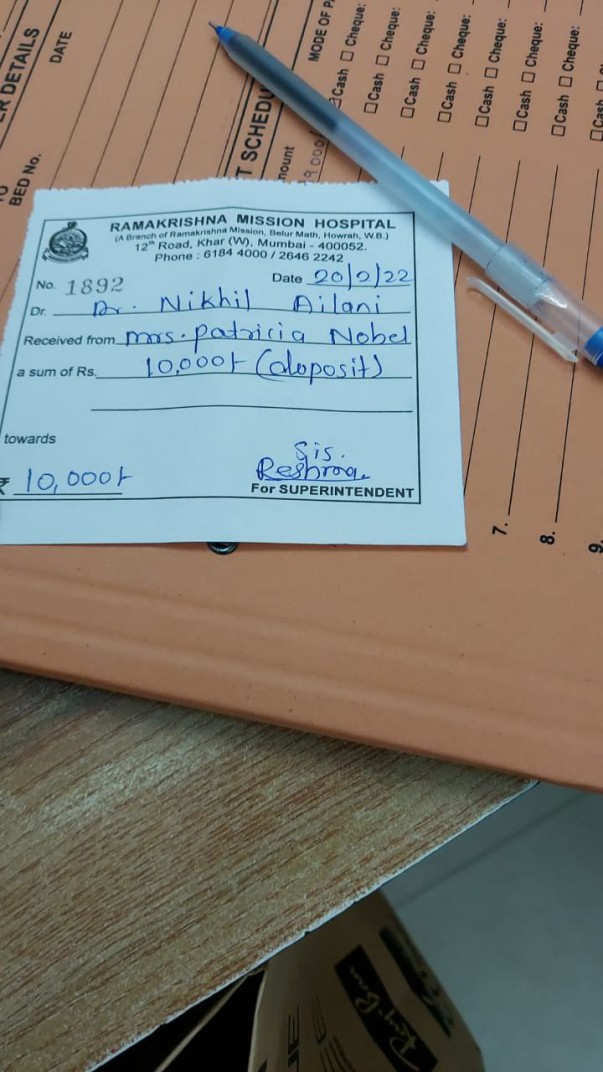 ER DETAILS
DATE
BED No.
T SCHEDU
MODE OF PA
mount
Cash Cheque:
Cash Cheque:
Cash Cheque:
Cash Cheque:
Cash Cheque:
Cash Cheque:
Cash Cheque:
Cash
RAMAKRISHNA MISSION HOSPITAL
(A Branch of Ramakrishna Mission, Belur Math, Howrah, W.B.)
12th Road, Khar (W), Mumbai - 400052.
Phone : 6184 4000 / 2646 2242
No. 1892 Date 20/2/22
Dr. Dr. Nikhil Ailani
Received from mrs. patricia Nobel
a sum of Rs. 10,000/- (deposit)
towards
₹ 10,000/-
Sis.
Reshma
For SUPERINTENDENT
7.
8.
9.
Ray-Ban